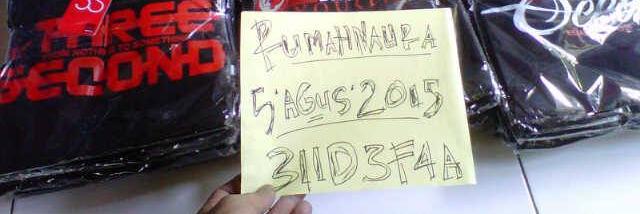 35
THREE
SECOND
Second
RUMAHNAURA
5'AGUS'2015
311D3F4A